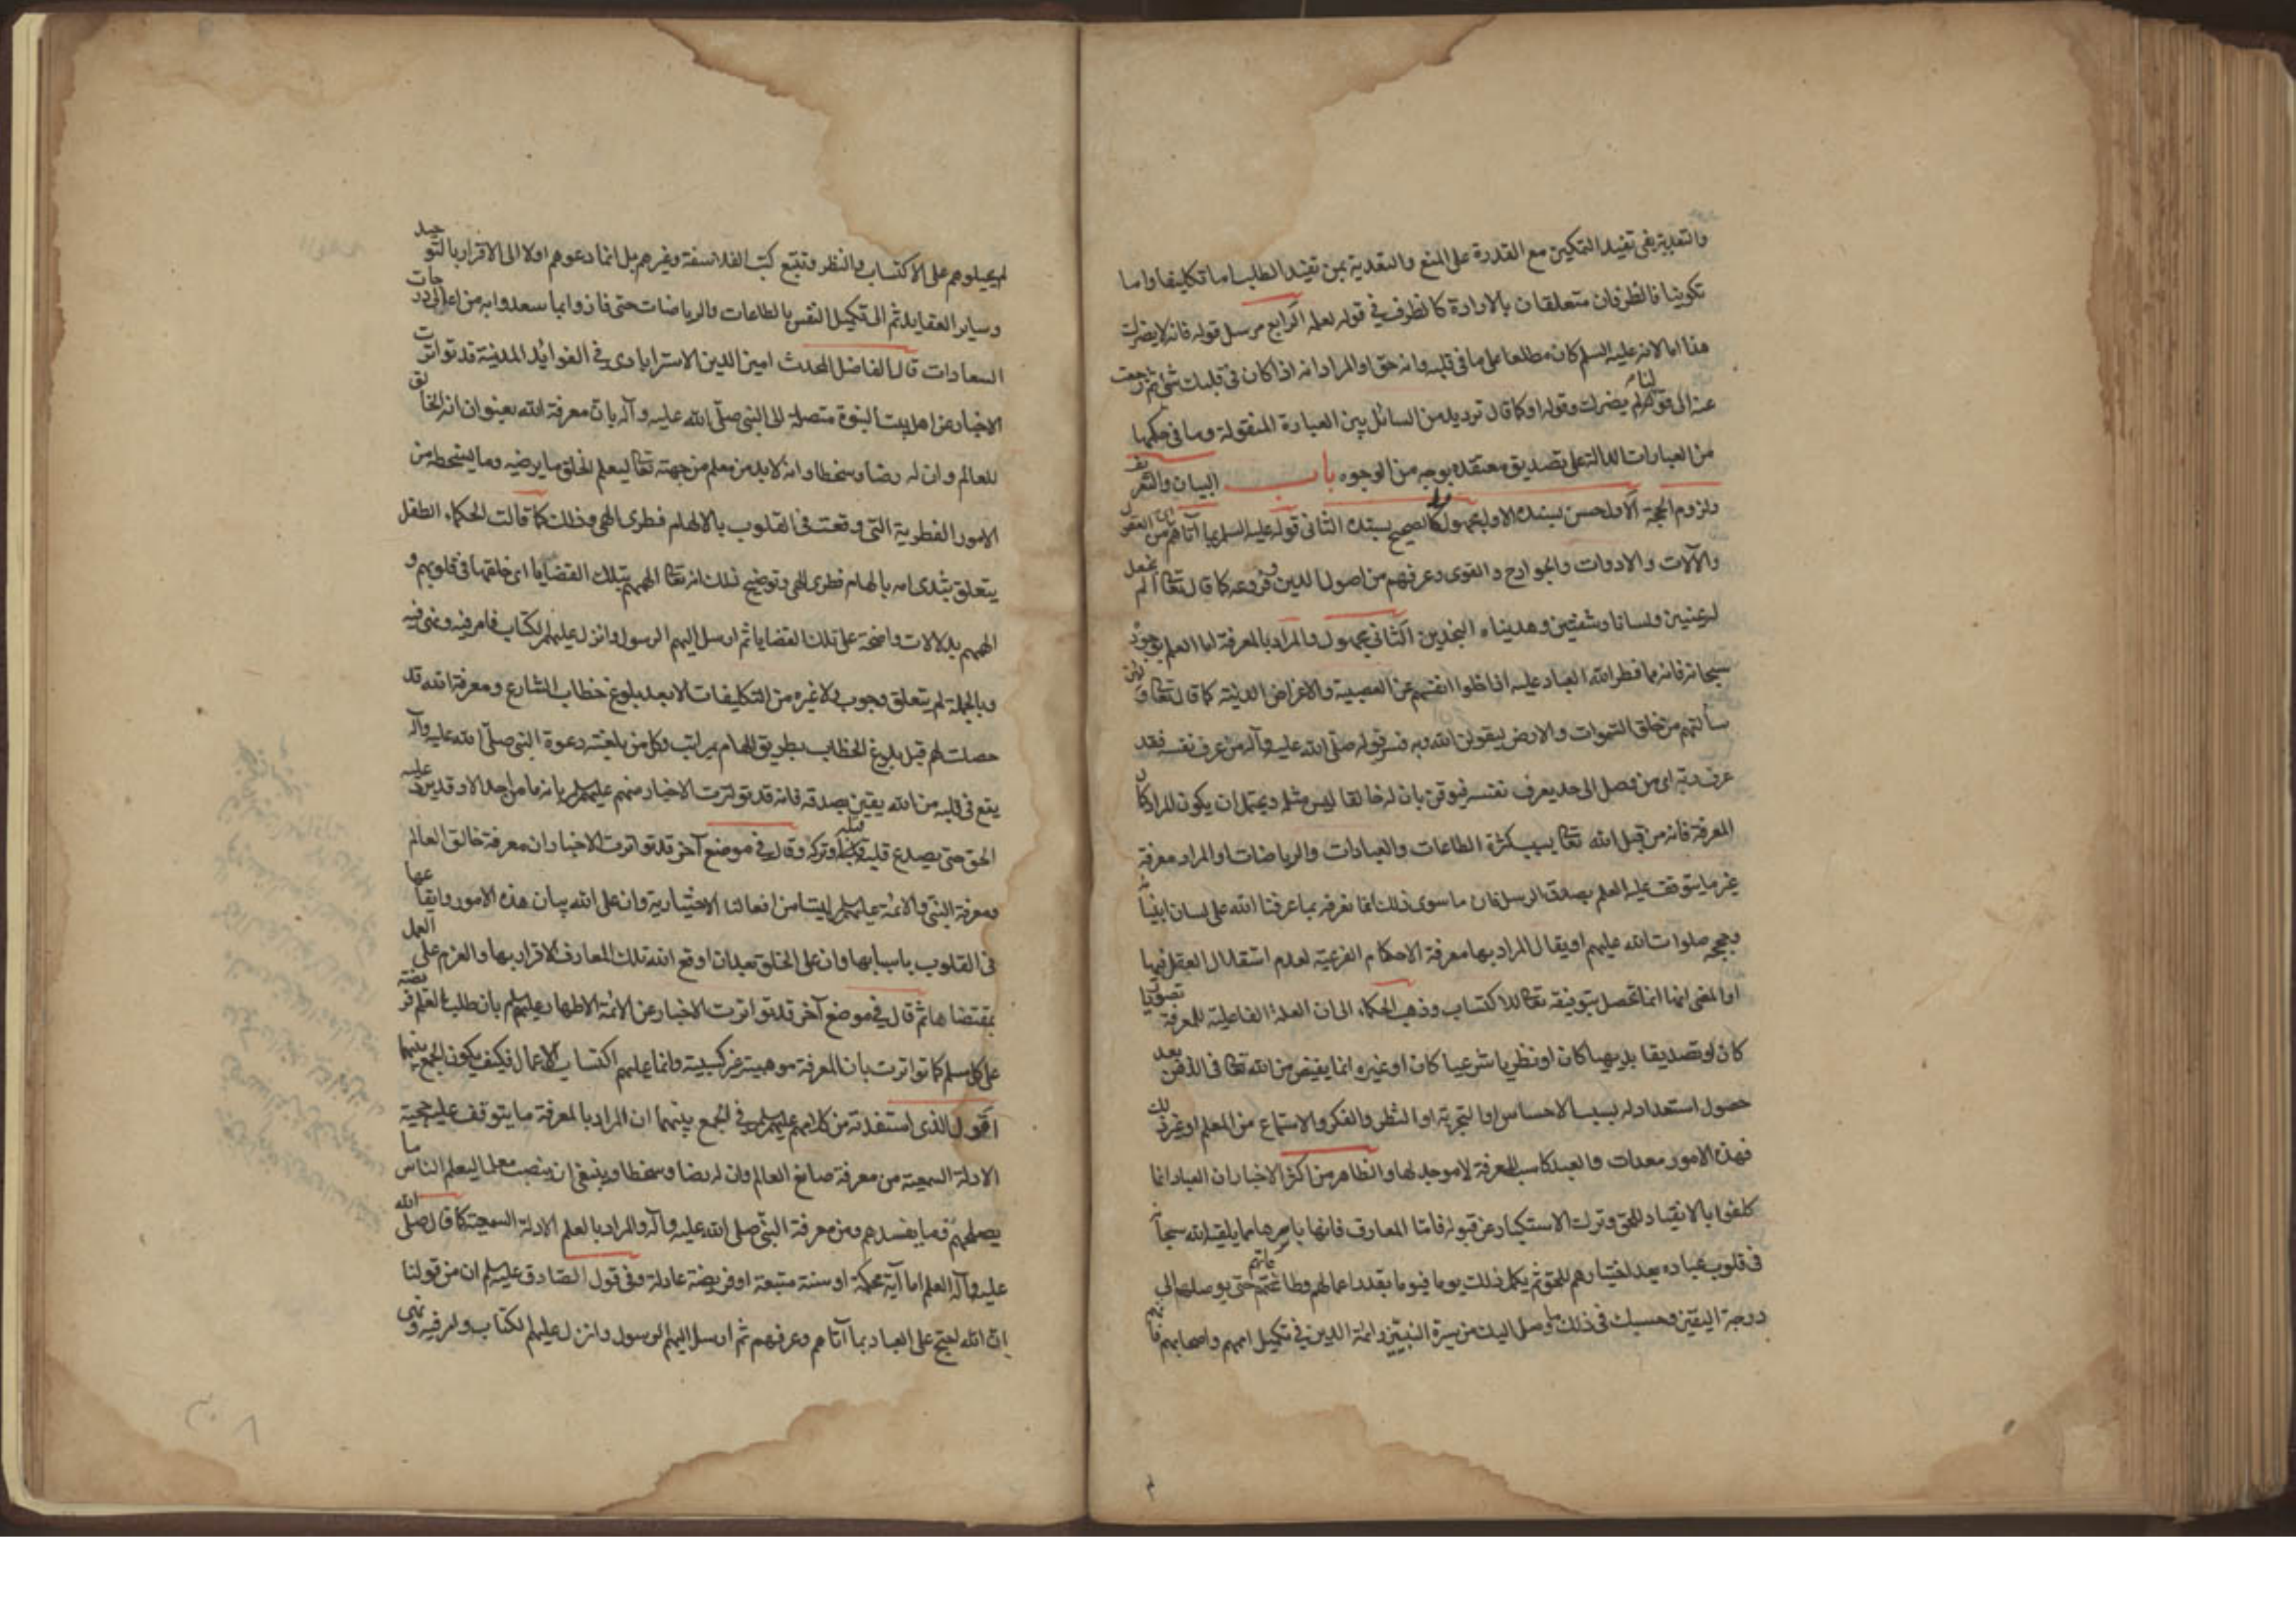 والتعدية بفي تفيد التمكين مع القدرة على المنع والتعدية بمن تفيد الطلب اما تكليفا واما
تكوينا فالظرفان متعلقان بالارادة كالظرف في قوله لعله الرابع مرسل قوله فانه لا يضرك
هذا اما لانه عليه السلم كان مطلعا على ما في قلبه وانه حق او المراد انه اذا كان في قلبك شئ ثم رجعت
عنه الى قولنا لم يضرك وقوله او كما قال ترديد من السائل بين العبارة المنقولة وما في حكمها
من العبارات الدالة على تصديق معتقده بوجه من الوجوه باب البيان والتعريف
ولزوم الحجة الاول حسن بسنده الاول مجهول كالصحيح بسنده الثاني قوله عليه السلم بما آتاهم من العقول
والآلات والادوات والجوارح والقوى وعرفهم من اصول الدين وفروعه كما قال تعالى الم نجعل
له عينين ولسانا وشفتين وهديناه النجدين الثاني مجهول والمراد بالمعرفة اما العلم بوجوده
سبحانه فانه مما فطر الله العباد عليه اذا خلوا انفسهم عن العصبية والاغراض الدنية كما قال تعالى ولئن
سألتهم من خلق السموات والارض ليقولن الله وبه فسر قوله صلى الله عليه وآله من عرف نفسه فقد
عرف ربه اى من وصل الى حد يعرف نفسه فيوقن بان له خالقا ليس مثله ويحتمل ان يكون المراد كمال
المعرفة فانه من قبل الله تعالى بسبب كثرة الطاعات والعبادات والرياضات او المراد معرفة
غير ما يتوقف عليه العلم بصدق الرسل فان ما سوى ذلك انما نعرفه بما عرفنا الله على لسان انبيائه
وحججه صلوات الله عليهم او يقال المراد بها معرفة الاحكام الفرعية لعدم استقلال العقل فيها
او المعنى انها انما تحصل بتوفيقه تعالى للاكتساب وذهب الحكماء الى ان العلة الفاعلية للمعرفة تصوريا
كان او تصديقا بديهيا كان او نظريا شرعيا كان او غيره انما يفيض من الله تعالى في الذهن بعد
حصول استعداد له بسبب الاحساس او التجربة او النظر والفكر والاستماع من المعلم او غير ذلك
فهذه الامور معدات والعبد كاسب للمعرفة لا موجد لها والظاهر من اكثر الاخبار ان العباد انما
كلفوا بالانقياد للحق وترك الاستكبار عن قبوله فاما المعارف فانها باسرها مما يلقيه الله سبحانه
في قلوب عباده بعد اختيارهم للحق ثم يكمل ذلك يوما فيوما بقدر اعمالهم وطاعاتهم حتى يوصلهم الى
درجة اليقين وحسبك في ذلك ما وصل اليك من سيرة النبيين وائمة الدين في تكميل اممهم واصحابهم فانهم
لم يحيلوهم على الاكتساب والنظر وتتبع كتب الفلاسفة وغيرهم بل انما دعوهم اولا الى الاقرار بالتوحيد
وساير العقايد ثم الى تكميل النفس بالطاعات والرياضات حتى فازوا بما سعدوا به من اعالى درجات
السعادات قال الفاضل المحدث امين الدين الاسترابادى في الفوائد المدنية قد تواترت
الاخبار عن اهل بيت النبوة متصلة الى النبي صلى الله عليه وآله بان معرفة الله بعنوان انه الخالق
للعالم وان له رضا وسخطا وانه لا بد من معلم من جهته تعالى ليعلم الخلق ما يرضيه وما يسخطه من
الامور الفطرية التى وقعت في القلوب بالالهام فطرى الهى وذلك كما قالت الحكماء الطفل
يتعلق بثدى امه بالهام فطرى الهى وتوضيح ذلك انه تعالى الهمهم بتلك القضايا اى خلقها في قلوبهم و
الهمهم بدلالات واضحة على تلك القضايا ثم ارسل اليهم الرسول وانزل عليهم الكتاب فامر فيه ونهى فيه
وبالجملة لم يتعلق وجوب ولا غيره من التكليفات الا بعد بلوغ خطاب الشارع ومعرفة الله قد
حصلت لهم قبل بلوغ الخطاب بطريق الهام بمراتب وكل من بلغته دعوة النبي صلى الله عليه وآله
يقع في قلبه من الله يقين بصدقه فانه قد تواترت الاخبار منهم عليهم السلم بانه ما من احد الا وقد يرد عليه
الحق حتى يصدع قلبه قبله او تركه وقال في موضع آخر قد تواترت الاخبار ان معرفة خالق العالم
ومعرفة النبي والائمة عليهم السلم ليستا من افعالنا الاختيارية وان على الله بيان هذه الامور وايقاعها
في القلوب باسبابها وان على الخلق بعد ان اوقع الله تلك المعارف الاقرار بها والعزم على العمل
بمقتضاها ثم قال في موضع آخر قد تواترت الاخبار عن الائمة الاطهار عليهم السلم بان طلب العلم فريضة
على كل مسلم كما تواترت بان المعرفة موهبية غير كسبية وانما عليهم اكتساب الاعمال فكيف يكون الجمع بينهما
اقول الذى استفدته من كلامهم عليهم السلم في الجمع بينهما ان المراد بالمعرفة ما يتوقف عليه حجية
الادلة السمعية من معرفة صانع العالم وان له رضا وسخطا وينبغى ان ينصب معلما ليعلم الناس ما
يصلحهم وما يفسدهم ومن معرفة النبي صلى الله عليه وآله والمراد بالعلم الادلة السمعية كما قال صلى الله
عليه وآله العلم اما آية محكمة او سنة متبعة او فريضة عادلة وفى قول الصادق عليه السلم ان من قولنا
ان الله احتج على العباد بما آتاهم وعرفهم ثم ارسل اليهم الرسول وانزل عليهم الكتاب وامر فيه ونهى